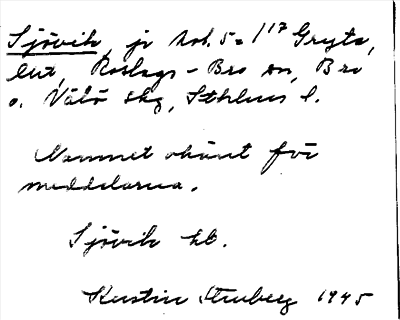 Sjövik, jr kob. 5 = 1/17 Gryta,
by, Roslags-Bro sn, Bro
o. Vätö skg, Sthlms l.
Namnet okänt för
meddelarna.
Sjövik hb.
Kerstin Stenberg 1945